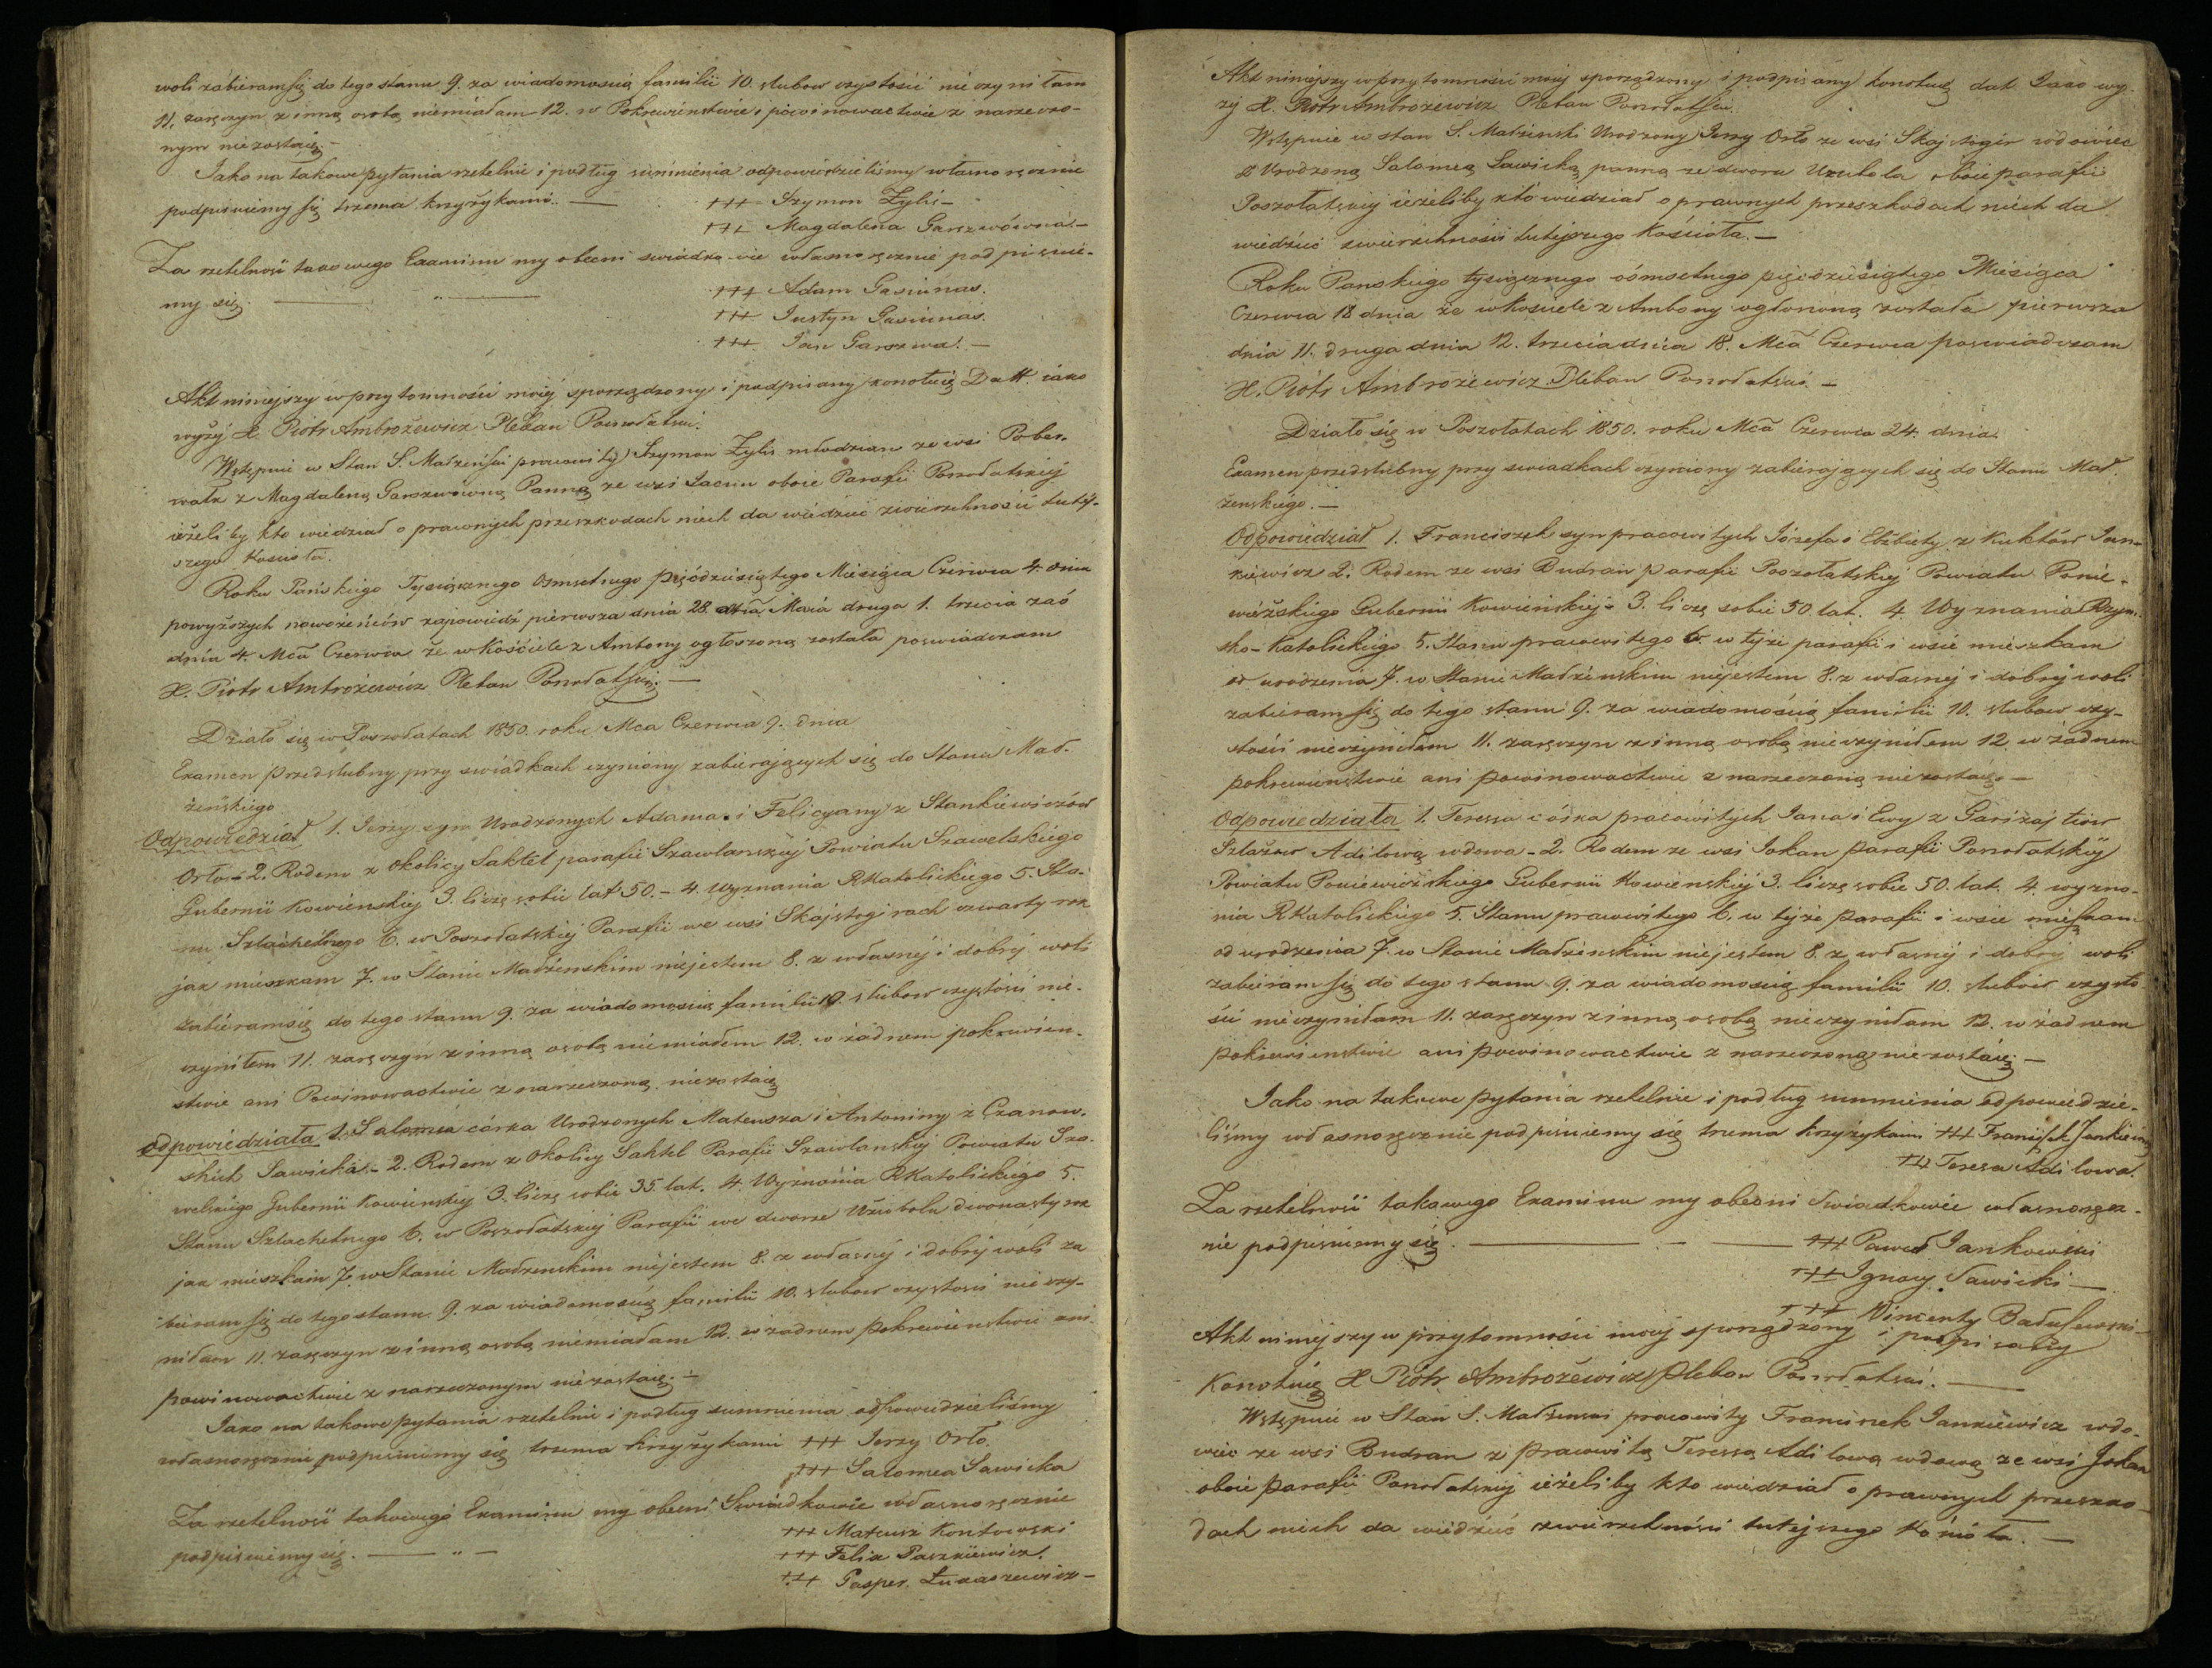 woli zabieram się do tego stanu 9. za wiadomością familii 10. slubow czystości nie czyniłam
11. zaręczyn z inną osobą niemiałam 12. w Pokrewieństwie i powinowactwie z narzeczo-
nym niezostaię. –
Jako na takowe pytania rzetelnie i podług sumienia odpowiedzieliśmy własnoręcznie
podpisuiemy się trzema krzyżykami. — +++ Szymon Żylis –
+++ Magdalena Garszwówna. –
Za rzetelność takowego Examinu my obecni swiadkowie własnoręcznie podpisuie-
my się. — " — +++ Adam Gasiunas.
+++ Justyn Gasiunas.
+++ Jan Garszwa. –
Akt niniejszy w przytomności moiéj sporządzony i podpisany konotuię Datt. iako
wyżéj X. Piotr Ambrożewicz Pleban Poszołatski.
Wstępuie w Stan S. Małżeński pracowity Szymon Żylis młodzian ze wsi Pober-
z Magdaleną Garszwówną Panną ze wsi oboie Parafii Poszołatskiéj
ieżeliby kto wiedział o prawnych przeszkodach niech da wiedzieć zwierzchności tutéj-
szego Koscioła.
Roku Pańskiego Tysiącznego Osmsetnego pięćdziesiątego Miesiąca Czerwca 4. dnia
powyższych nowożeńców zapowiedź pierwsza dnia 28. Maia druga 1. trzecia zaś
dnia 4. Mca Czerwca że w Kościele z Ambony ogłoszoną została poswiadczam
X. Piotr Ambrożewicz Pleban Poszołatski. —
Działo się w Poszołatach 1850. roku Mca Czerwca 9. dnia
Examen przedslubny przy swiadkach czyniony zabierających się do Stanu Mał-
żeńskiego
Odpowiedział 1. Jerzy syn Urodzonych Adama i Felicyany z Stankiewiczów
Orło – 2. Rodem z Okolicy Saktel parafii Szawlanskiéj Powiatu Szawelskiego
Gubernii Kowieńskiéj 3. liczę sobie lat 50. – 4. Wyznania RKatolickiego 5. Sta-
nu Szlachetnego 6. w Poszołatskiéj Parafii we wsi Skajstogirach czwarty rok
jak mieszkam 7. w Stanie Małżenskim niejestem 8. z własnéj i dobréj woli
zabieramsię do tego stanu 9. za wiadomością familii 10 slubow czystości nie-
czyniłem 11. zaręczyn z inną osobą niemiałem 12. w żadnem pokrewien-
stwie ani Powinowactwie z narzeczoną niezostaię
Odpowiedziała 1. Salomea córka Urodzonych Mateusza i Antoniny z Czanow-
skich Sawicka. – 2. Rodem z Okolicy Saktel Parafii Szawlanskiéj Powiatu Sza-
welskiego Gubernii Kowieńskiéj 3. liczę sobie 35. lat. 4. Wyznania RKatolickiego 5.
Stanu Szlachetnego 6. w Poszołatskiéj Parafii we dworze dwonasty rok
jak mieszkam 7. w Stanie Małzenskim niejestem 8. z własnéj i dobréj woli za
bieram się do tego stanu 9. za wiadomością familii 10. slubow czystości nie czy-
niłam 11. zaręczyn z inną osobą niemiałam 12. w żadnem pokrewienstwie ani
powinowactwie z narzeczonym niezostaię. –
Jako na takowe pytania rzetelnie i podług sumnienia odpowiedzieliśmy
własnoręcznie podpisuiemy się trzema krzyżykami +++ Jerzy Orło.
+++ Salomea Sawicka
Za rzetelność takowego Examinu my obecni Swiadkowie własnoręcznie
podpisuiemy się. — " — +++ Mateusz Kontowski
+++ Felix Paszkiewicz.
+++ Gasper. Łukaszewicz –
Akt niniejszy w przytomności moiéj sporządzony i podpisany konotuię dat. Jako wy-
żéj X. Piotr Ambrożewicz Pleban Poszołatski.
Wstępuie w stan S. Małżenski Urodzony Jerzy Orło ze wsi Skajstogir wdowiec
z Urodzoną Salomeą Sawicką panną ze dworu oboie parafii
Poszołatskiéj ieżeliby kto wiedział o prawnych przeszkodach niech da
wiedzieć zwierzchności tutejszego Kościoła. —
Roku Panskiego tysiącznego osmsetnego pięćdziesiątego Miesiąca
Czerwca 18 dnia że w kościele z Ambony ogłoszoną została pierwsza
dnia 11. druga dnia 12. trzecia dnia 18. Mca Czerwca poswiadczam
X. Piotr Ambrożewicz Pleban Poszołatski. –
Działo się w Poszołatach 1850. roku Mca Czerwca 24. dnia.
Examen przedslubny przy swiadkach czyniony zabierających się do Stanu Mał-
żenskiego. –
Odpowiedział 1. Franciszek syn pracowitych Józefa i Elżbiety z Kuktów Jan-
kiewicz 2. Rodem ze wsi Budran parafii Poszołatskiéj Powiatu Ponie-
wieżskiego Gubernii Kowieńskiéj – 3. liczę sobie 50 lat. 4. Wyznania Rzym-
sko-Katolickiego 5. Stanu pracowitego 6. w tejże parafii i wsie mieszkam
od urodzenia 7. w Stanie Małżenskim niejestem 8. z własnéj i dobréj woli
zabieram się do tego stanu 9. za wiadomością familii 10. slubow czy-
stości nieczyniłem 11. zaręczyn z inną osobą nieczyniłem 12. w żadnem
pokrewienstwie ani powinowactwie z narzeczoną niezostaię. —
Odpowiedziała 1. Teressa córka pracowitych Jana i Ewy z
Adilową wdowa – 2. Rodem ze wsi Jokan parafii Poszołatskiéj
Powiatu Poniewieżskiego Gubernii Kowienskiéj 3. liczę sobie 50. lat. 4. wyzna-
nia RKatolickiego 5. Stanu pracowitego 6. w tejże parafii i wsie mieszkam
od urodzenia 7. w Stanie Małżenskim niejestem 8. z własnéj i dobréj woli
zabieram się do tego stanu 9. za wiadomością familii 10. slubów czysto
ści nieczyniłam 11. zaręczyn z inną osobą nieczyniłam 12. w żadnem
pokrewienstwie ani powinowactwie z narzeczoną niezostaię. –
Jako na takowe pytania rzetelnie i podług sumnienia odpowiedzie-
liśmy własnoręcznie podpisuiemy się trzema krzyżykami +++ Franciszek Jankiewicz
+++ Teresa Adilowa.
Za rzetelność takowego Examinu my obecni Swiadkowie własnoręcz-
nie podpisuiemy się. — – — +++ Paweł Jankowski
+++ Ignacy Sawicki –
+++ Vincenty
Akt niniejszy w przytomności moiéj sporządzony i podpisany
Konotuię X Piotr Ambrożewicz Pleban Poszołatski. —
Wstępuie w Stan S. Małżenski pracowity Franciszek Jankiewicz wdo-
wiec ze wsi Budran z pracowitą Teressą Adilową wdową ze wsi Jokan
oboie parafii Poszołatskiéj ieżeliby kto wiedział o prawnych przeszko-
dach niech da wiedzieć zwierzchności tutejszego Kościoła. —